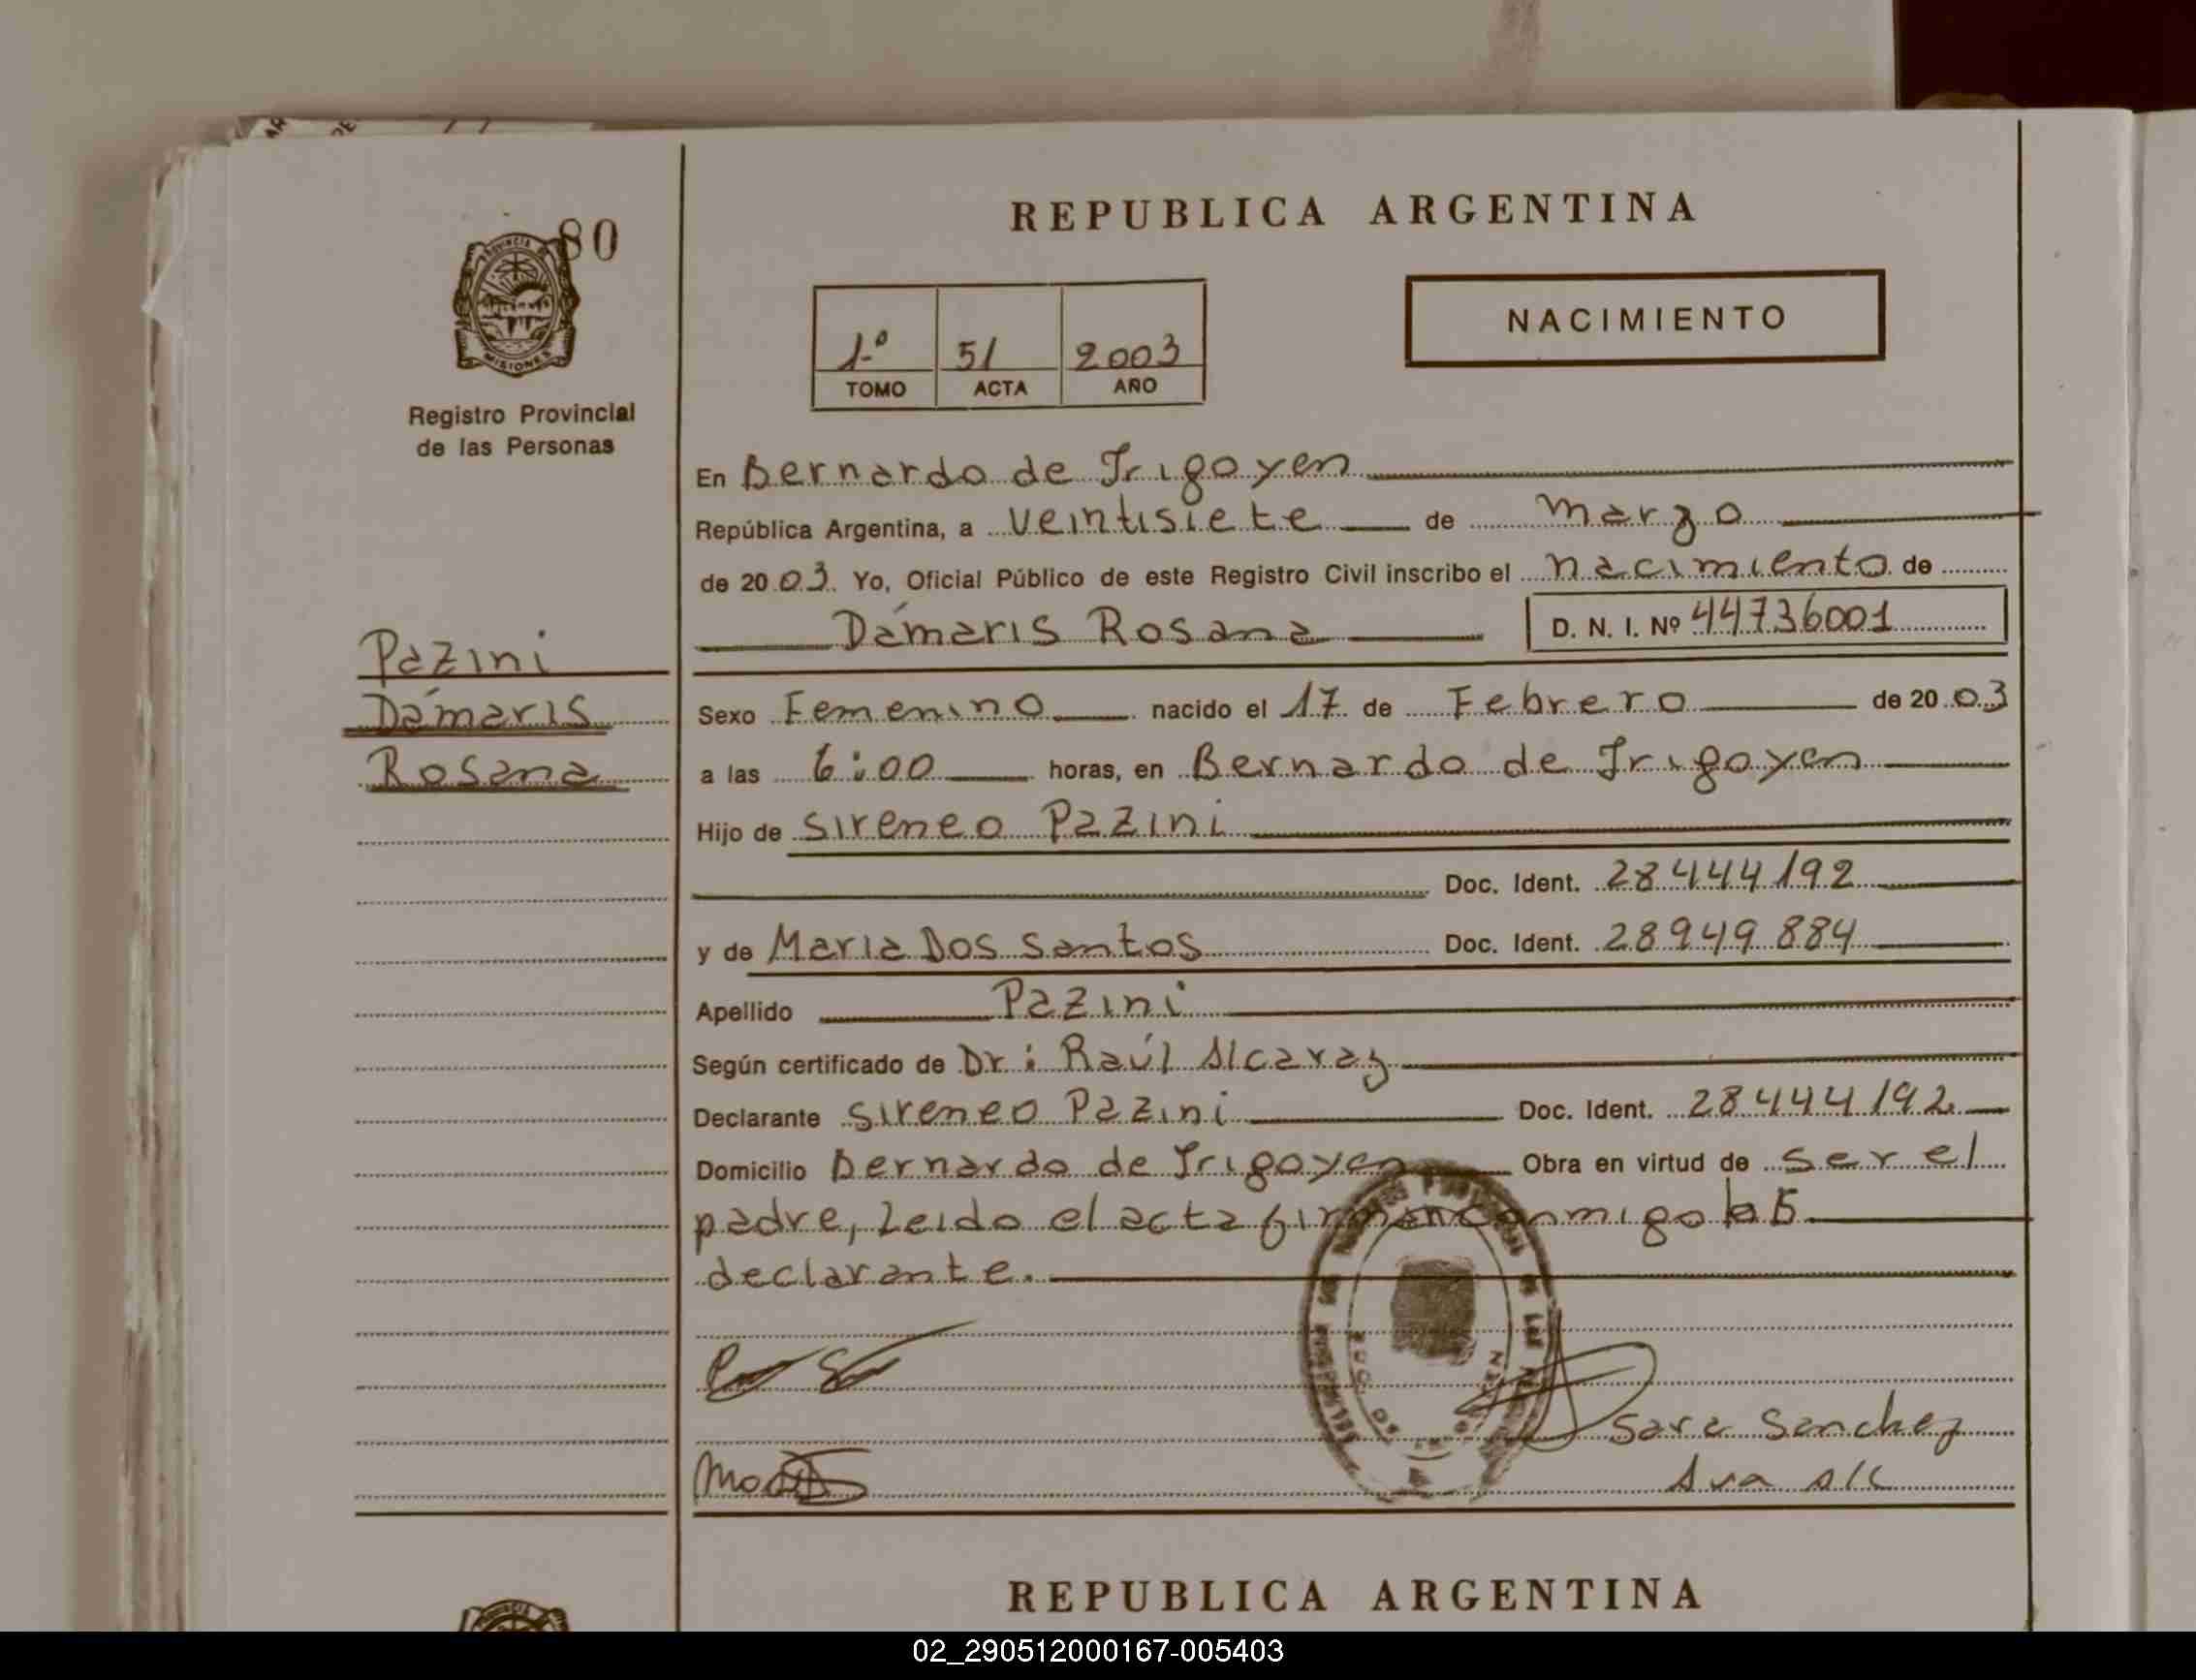 80
PROVINCIA DE
MISIONES
Registro Provincial
de las Personas
Pazini
Dámaris
Rosana
REPUBLICA ARGENTINA
NACIMIENTO
1º 51 2003
TOMO ACTA AÑO
En Bernardo de Irigoyen
República Argentina, a veintisiete de marzo
de 2003. Yo, Oficial Público de este Registro Civil inscribo el nacimiento de
Dámaris Rosana D. N. I. Nº 44736001
Sexo Femenino nacido el 17 de Febrero de 2003
a las 6:00 horas, en Bernardo de Irigoyen
Hijo de Sireneo Pazini
Doc. Ident. 28444192
y de Maria Dos Santos Doc. Ident. 28949884
Apellido Pazini
Según certificado de Dr: Raúl Alcaraz
Declarante Sireneo Pazini Doc. Ident. 28444192
Domicilio Bernardo de Irigoyen Obra en virtud de ser el
padre, Leido el acta firman conmigo
declarante.
Sara Sanchez
REPUBLICA ARGENTINA
02_290512000167-005403